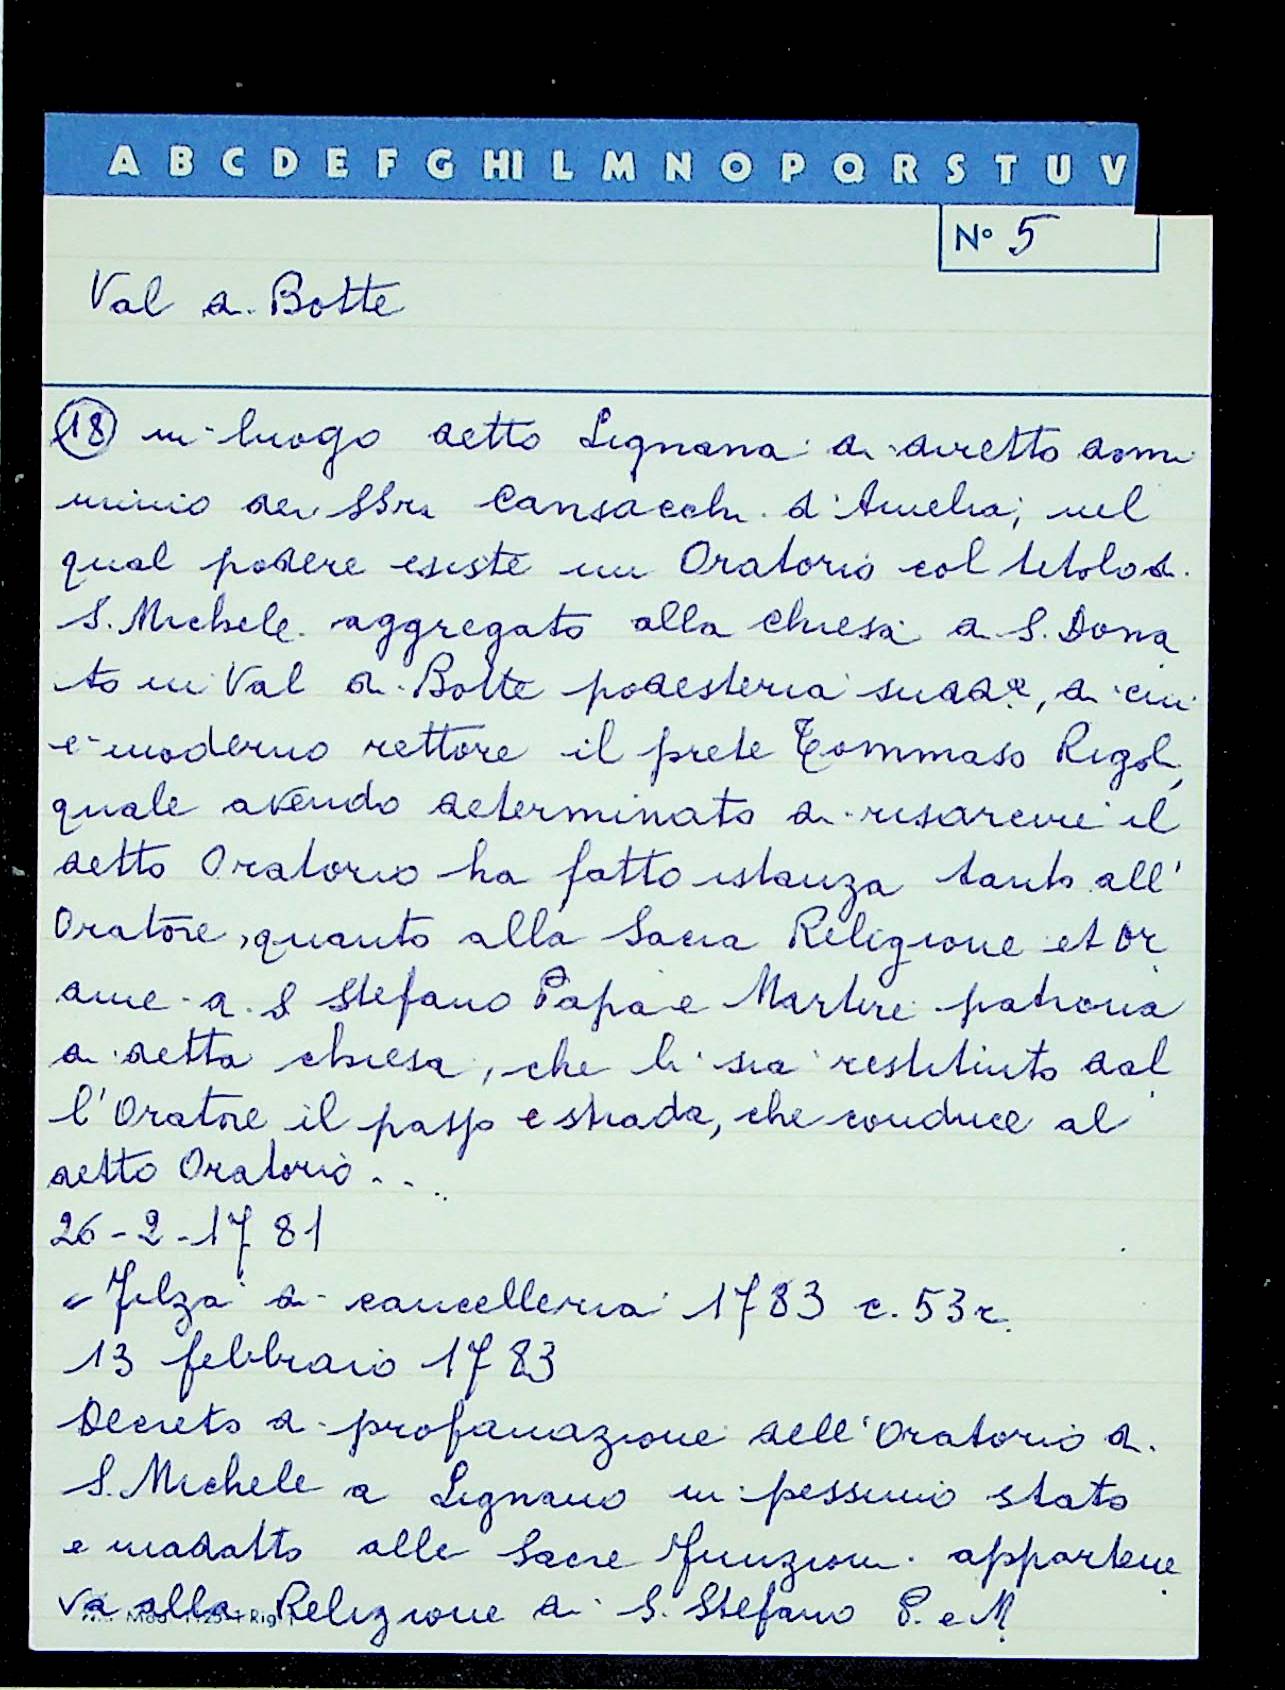 A B C D E F G HI L M N O P Q R S T U V
N° 5
Val di Botte
18 in luogo detto Lignana di diretto domi
minio dei SSri Cansacchi d'Amelia, nel
qual podere esiste un Oratorio col titolo di
S. Michele aggregato alla chiesa di S. Dona
to in Val di Botte podesteria sudda, di cui
è moderno rettore il prete Tommaso Rigoli,
quale avendo determinato di risarcire il
detto Oratorio ha fatto istanza tanto all'
Oratore, quanto alla Sacra Religione et Or
dine di S Stefano Papa e Martire patrona
di detta chiesa, che li sia restituito dal
l'Oratore il passo e strada, che conduce al
detto Oratorio...
26-2-1781
" Filza di cancelleria 1783 c. 53r.
13 febbraio 1783
Decreto di profanazione dell'Oratorio di
S. Michele a Lignano in pessimo stato
e inadatto alle Sacre Funzioni. appartene
va alla Religione di S. Stefano P. e M.